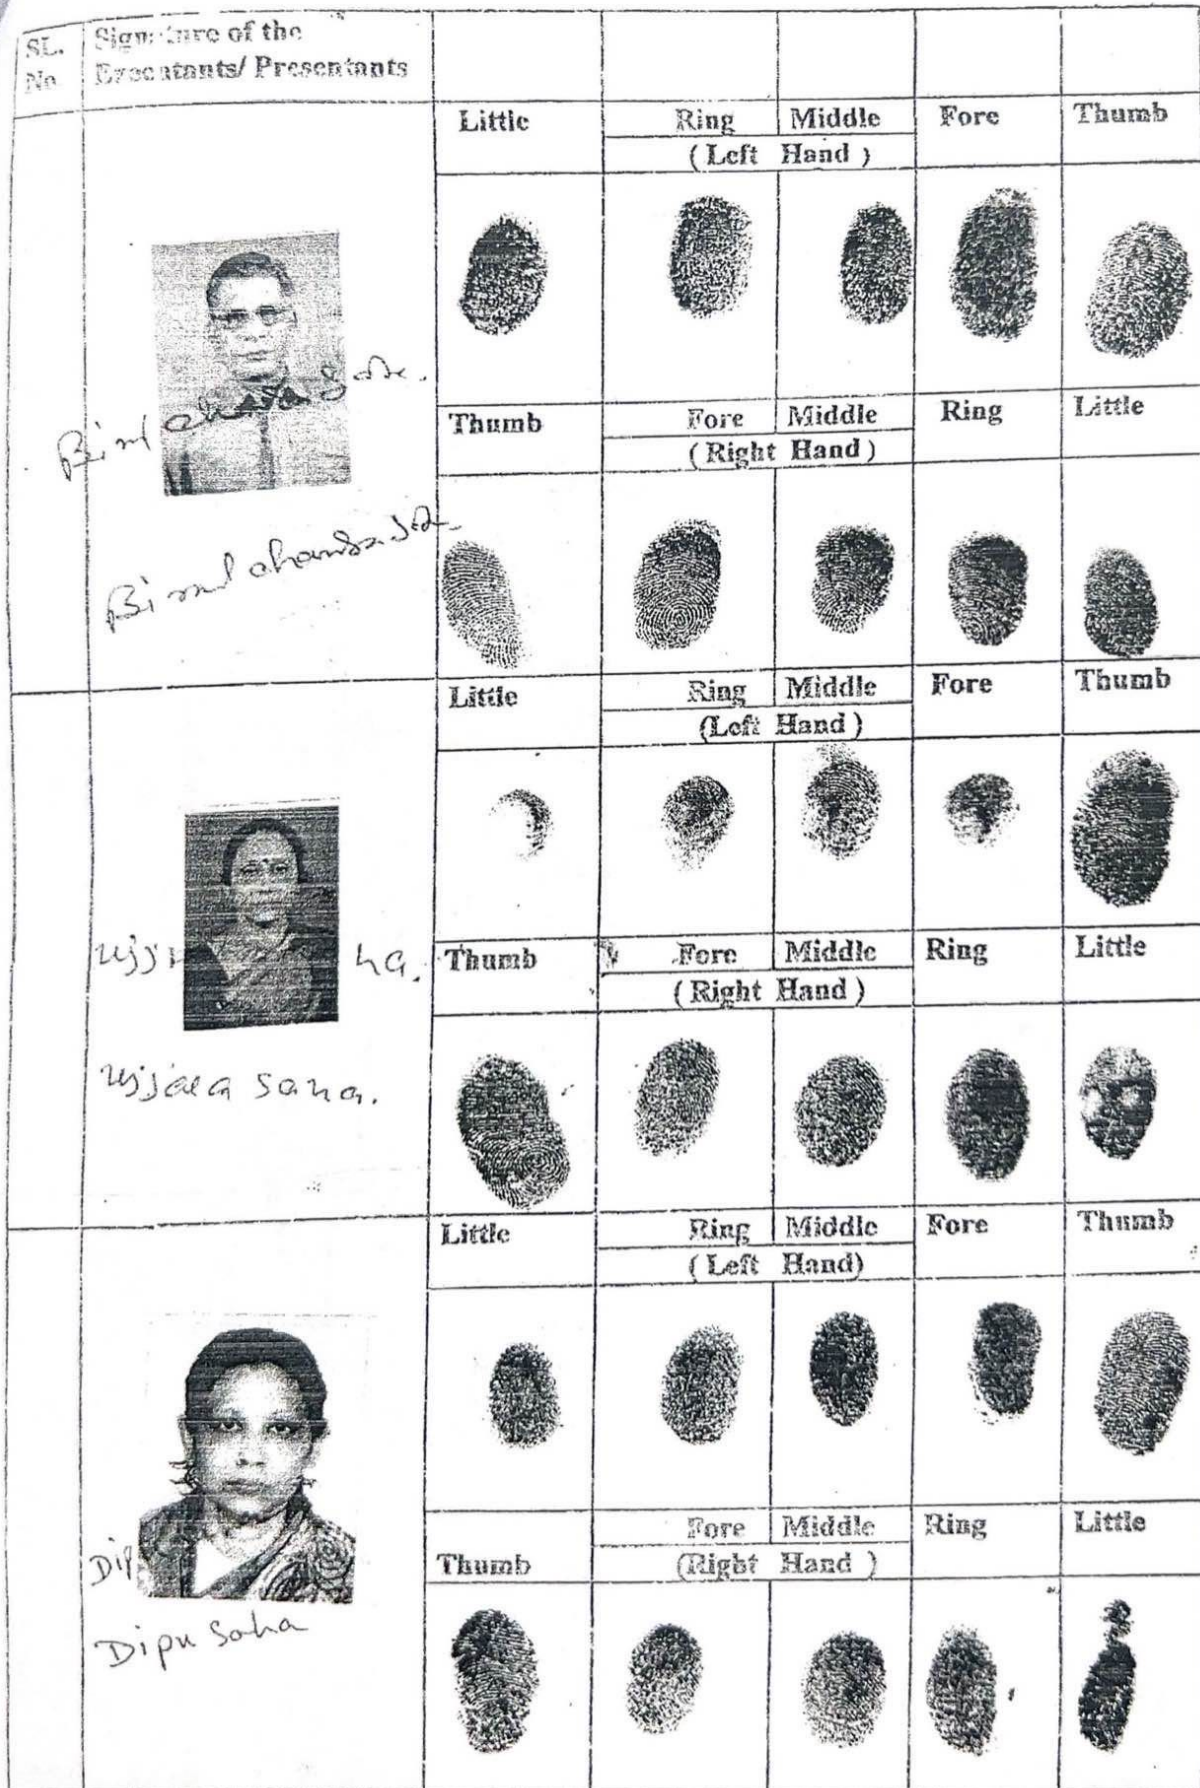 SL. No.
Signature of the
Executants/ Presentants
Little Ring Middle Fore Thumb
( Left Hand )
Thumb Fore Middle Ring Little
( Right Hand )
Bimal chandra
Little Ring Middle Fore Thumb
(Left Hand )
ha.
Thumb Fore Middle Ring Little
( Right Hand )
saha.
Little Ring Middle Fore Thumb
( Left Hand)
Dip
Thumb Fore Middle Ring Little
(Right Hand )
Dipu Saha